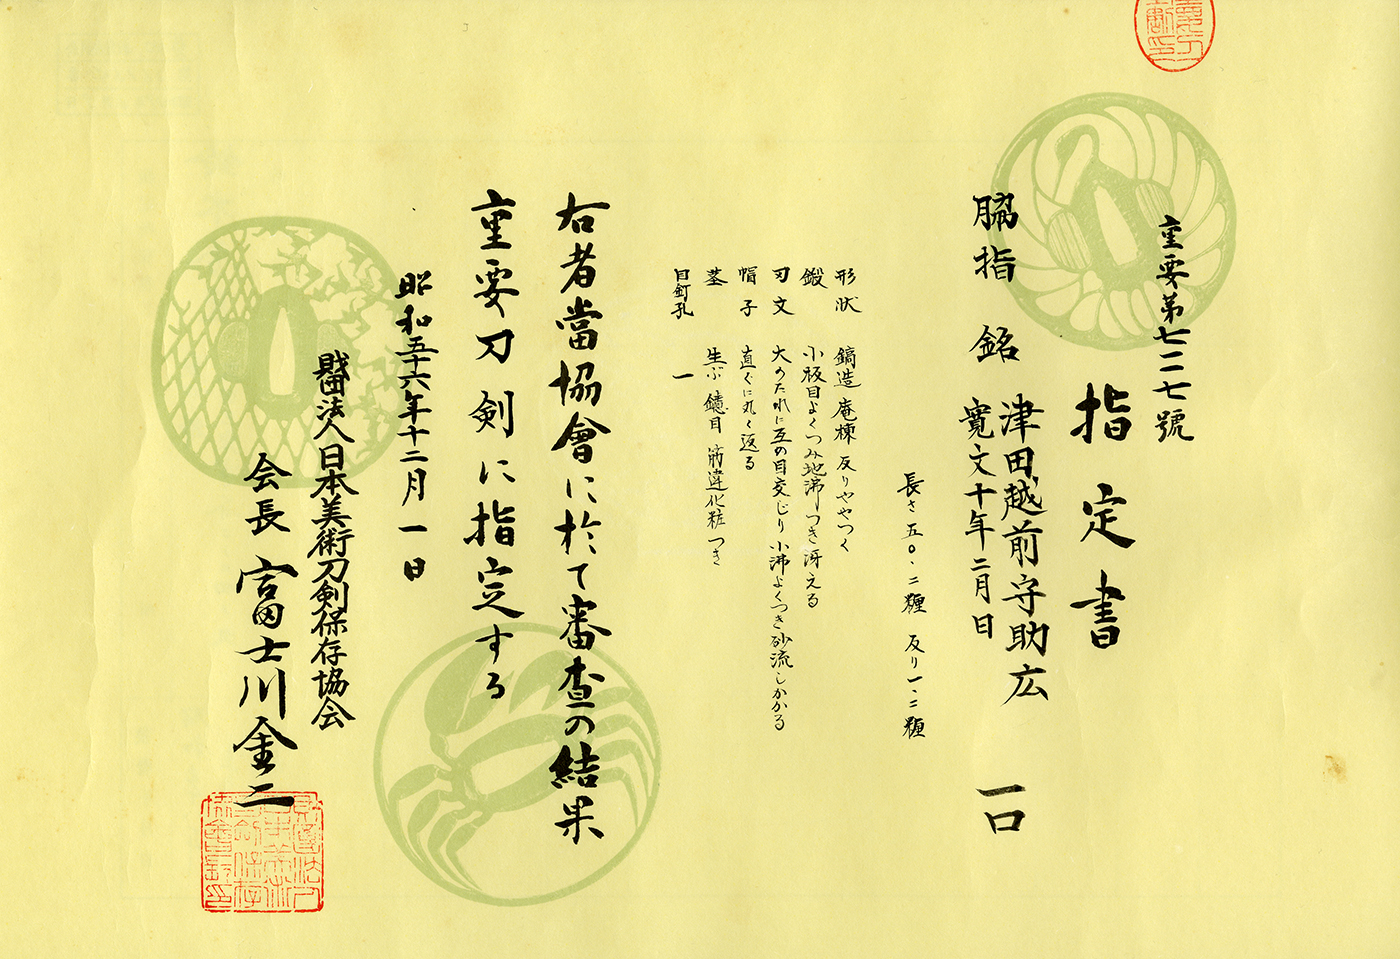 重要第七二一七號
指定書
脇指 銘 津田越前守助広 一口
寛文十年二月日
長さ 五〇・二糎 反り 一・二糎
形状 鎬造 庵棟 反りややつく
鍛 小板目よくつみ地沸つき冴える
刃文 大のたれに互の目交じり 小沸よくつき砂流しかかる
帽子 直ぐに丸く返る
茎 生ぶ 鑢目 筋違化粧つき
目釘孔 一
右者當協會に於て審査の結果
重要刀剣に指定する
昭和五十六年十二月一日
財団法人日本美術刀剣保存協会
会長 富士川金二